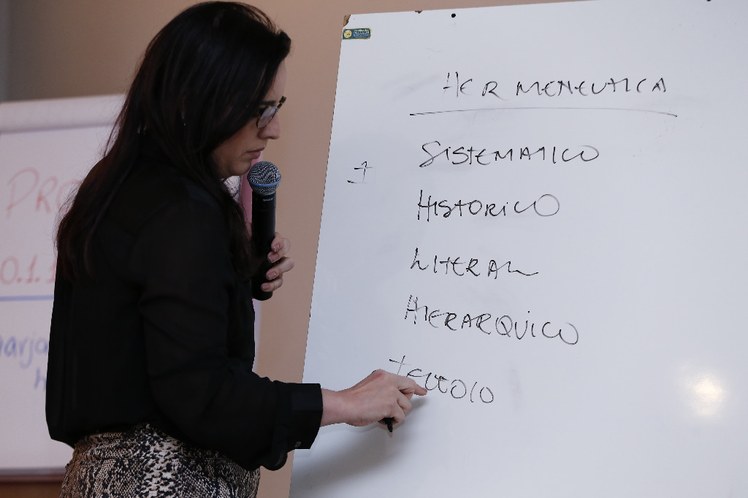 HERMENEUTICA
SISTEMATICO
HISTORICO
LITERAL
HIERARQUICO
PRO
0.1.1